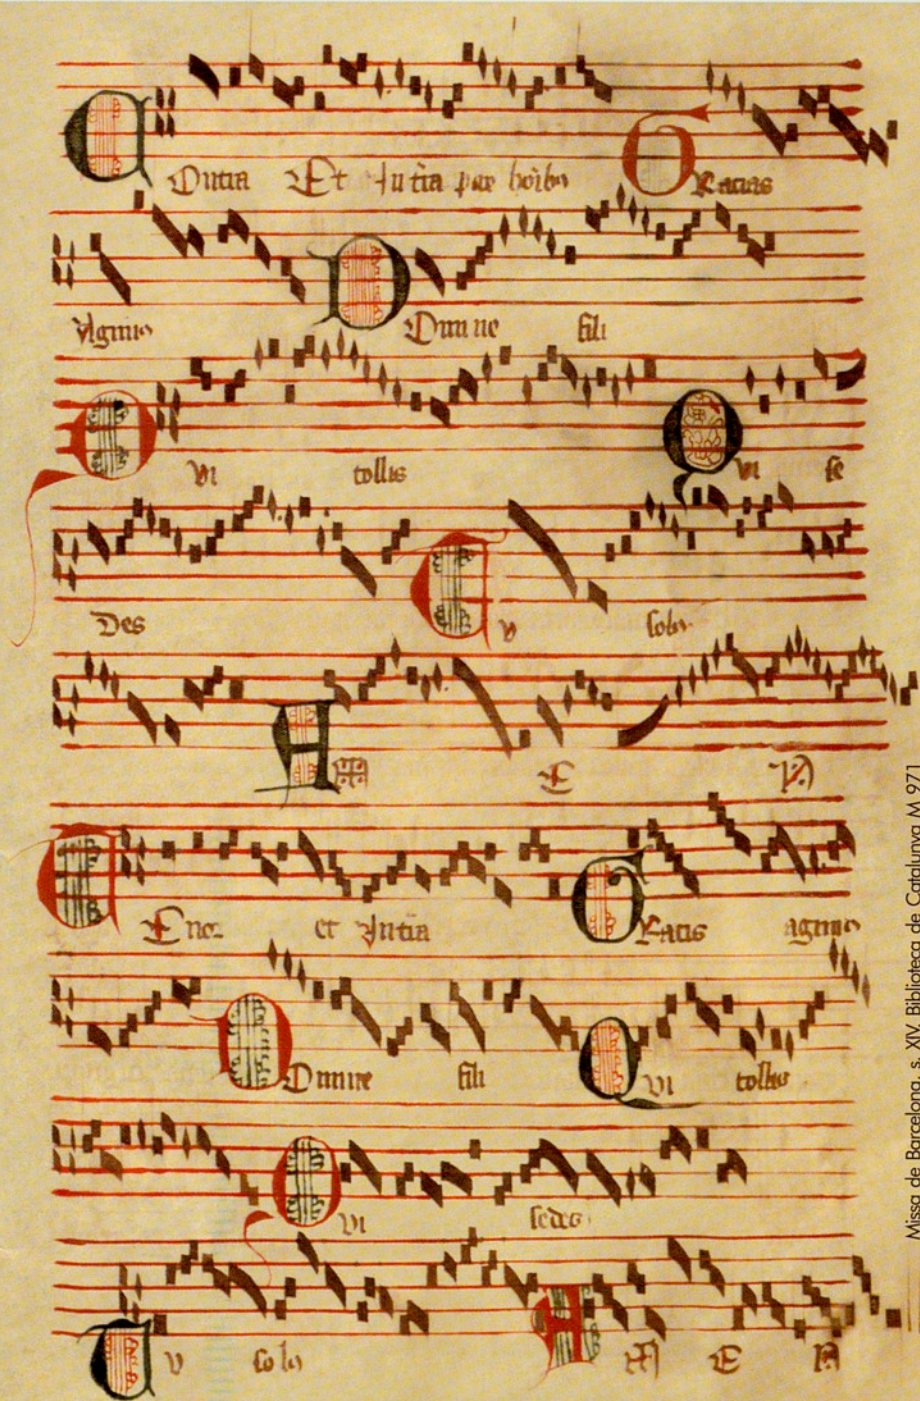 Contra Et In tra pax hoibo Gracias
Agimus
Domine fili
Qui tollis Qui se
Des
Tu solus
AMEN
Tenor et In tra Gracias agimus
Domine fili Qui tollis
Qui sedes
Tu solus AMEN
Missa de Barcelona, s. XIV Biblioteca de Catalunya M 971